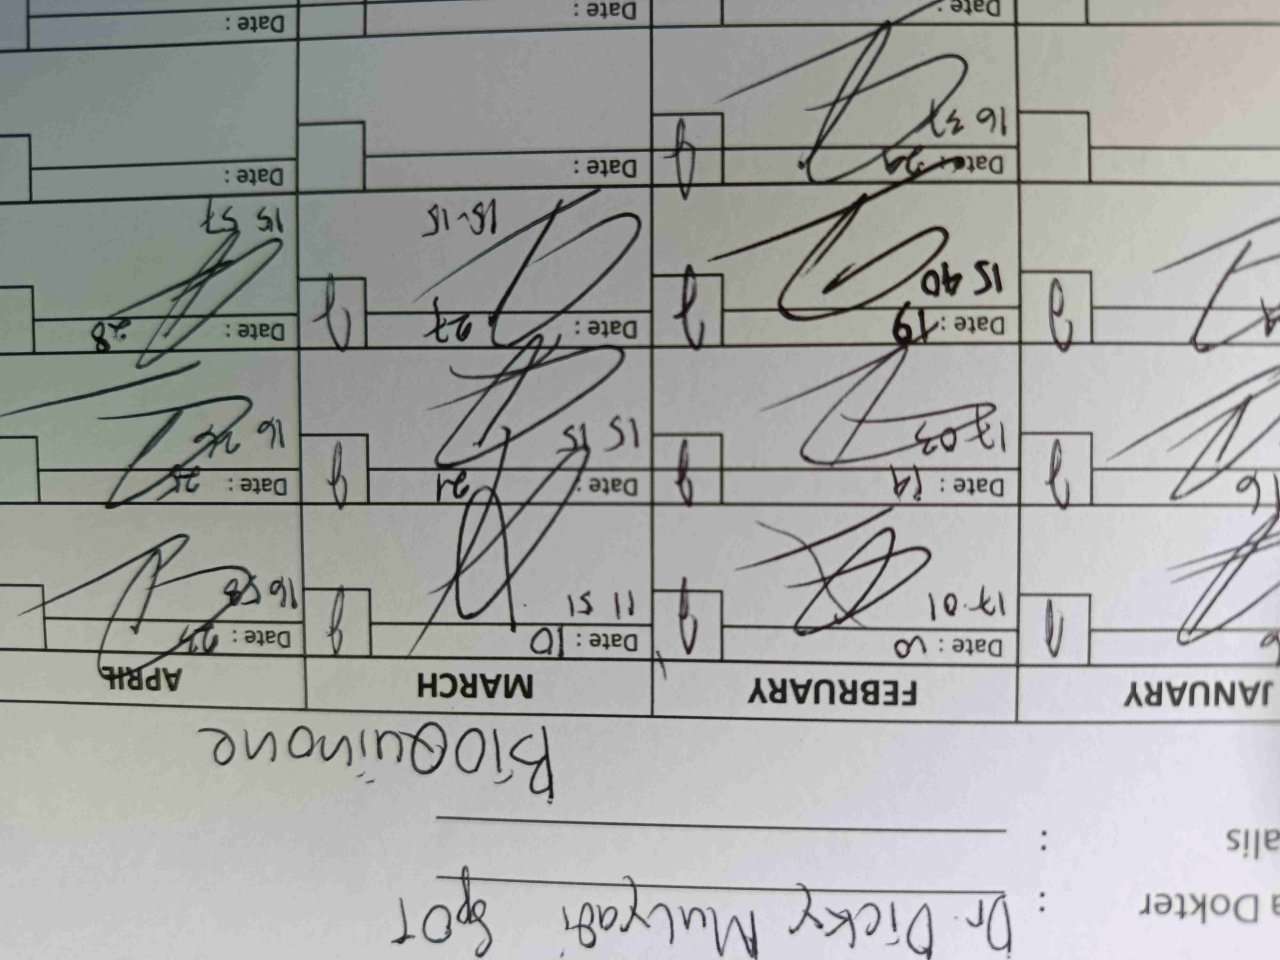 a Dokter : Dr. Dicky Mulyadi SpOT
alis :
BioQuinone
JANUARY FEBRUARY MARCH APRIL
Date : Date : 10 Date : 22
17.01 11 51 16 58
Date : 14 Date : 21 Date : 25
16 17.03 15 15 16
Date : 19 Date : 27 Date : 28
15 40 15-15 15 57
Date : Date : Date :
16 37
Date : Date : Date :